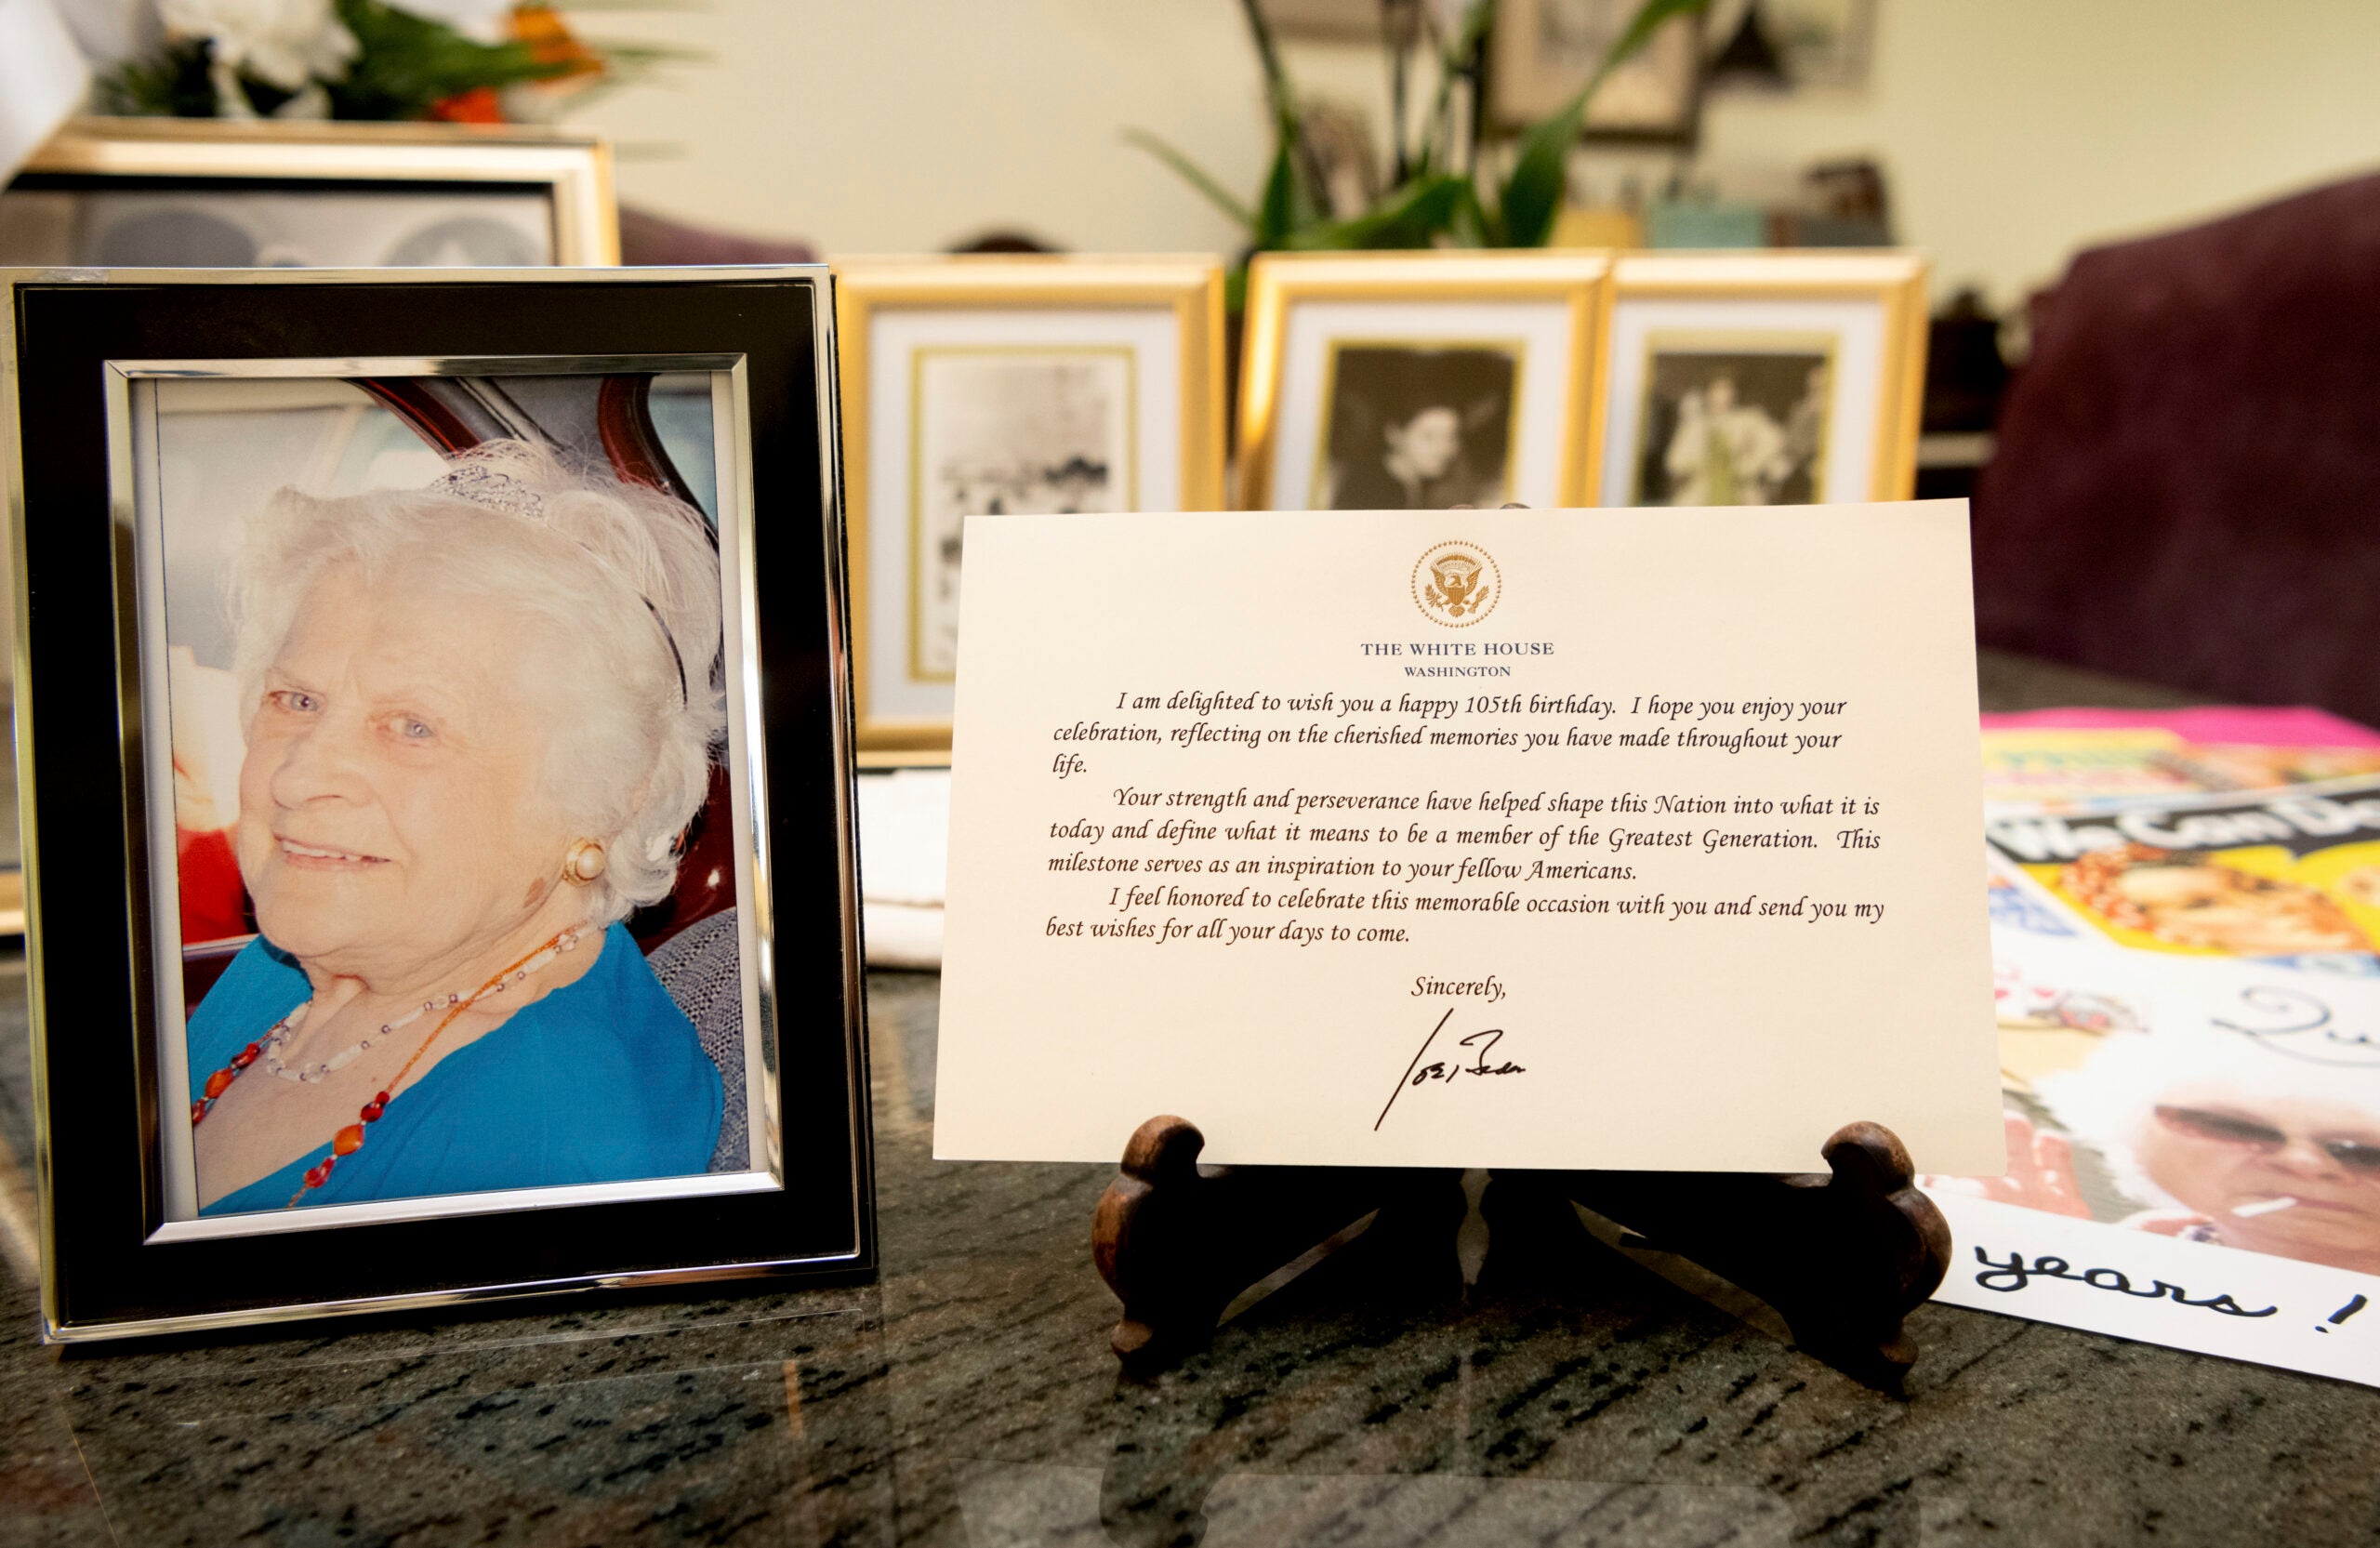 THE WHITE HOUSE
WASHINGTON
I am delighted to wish you a happy 105th birthday. I hope you enjoy your
celebration, reflecting on the cherished memories you have made throughout your
life.
Your strength and perseverance have helped shape this Nation into what it is
today and define what it means to be a member of the Greatest Generation. This
milestone serves as an inspiration to your fellow Americans.
I feel honored to celebrate this memorable occasion with you and send you my
best wishes for all your days to come.
Sincerely,
Joe Biden
We Can Do
years!